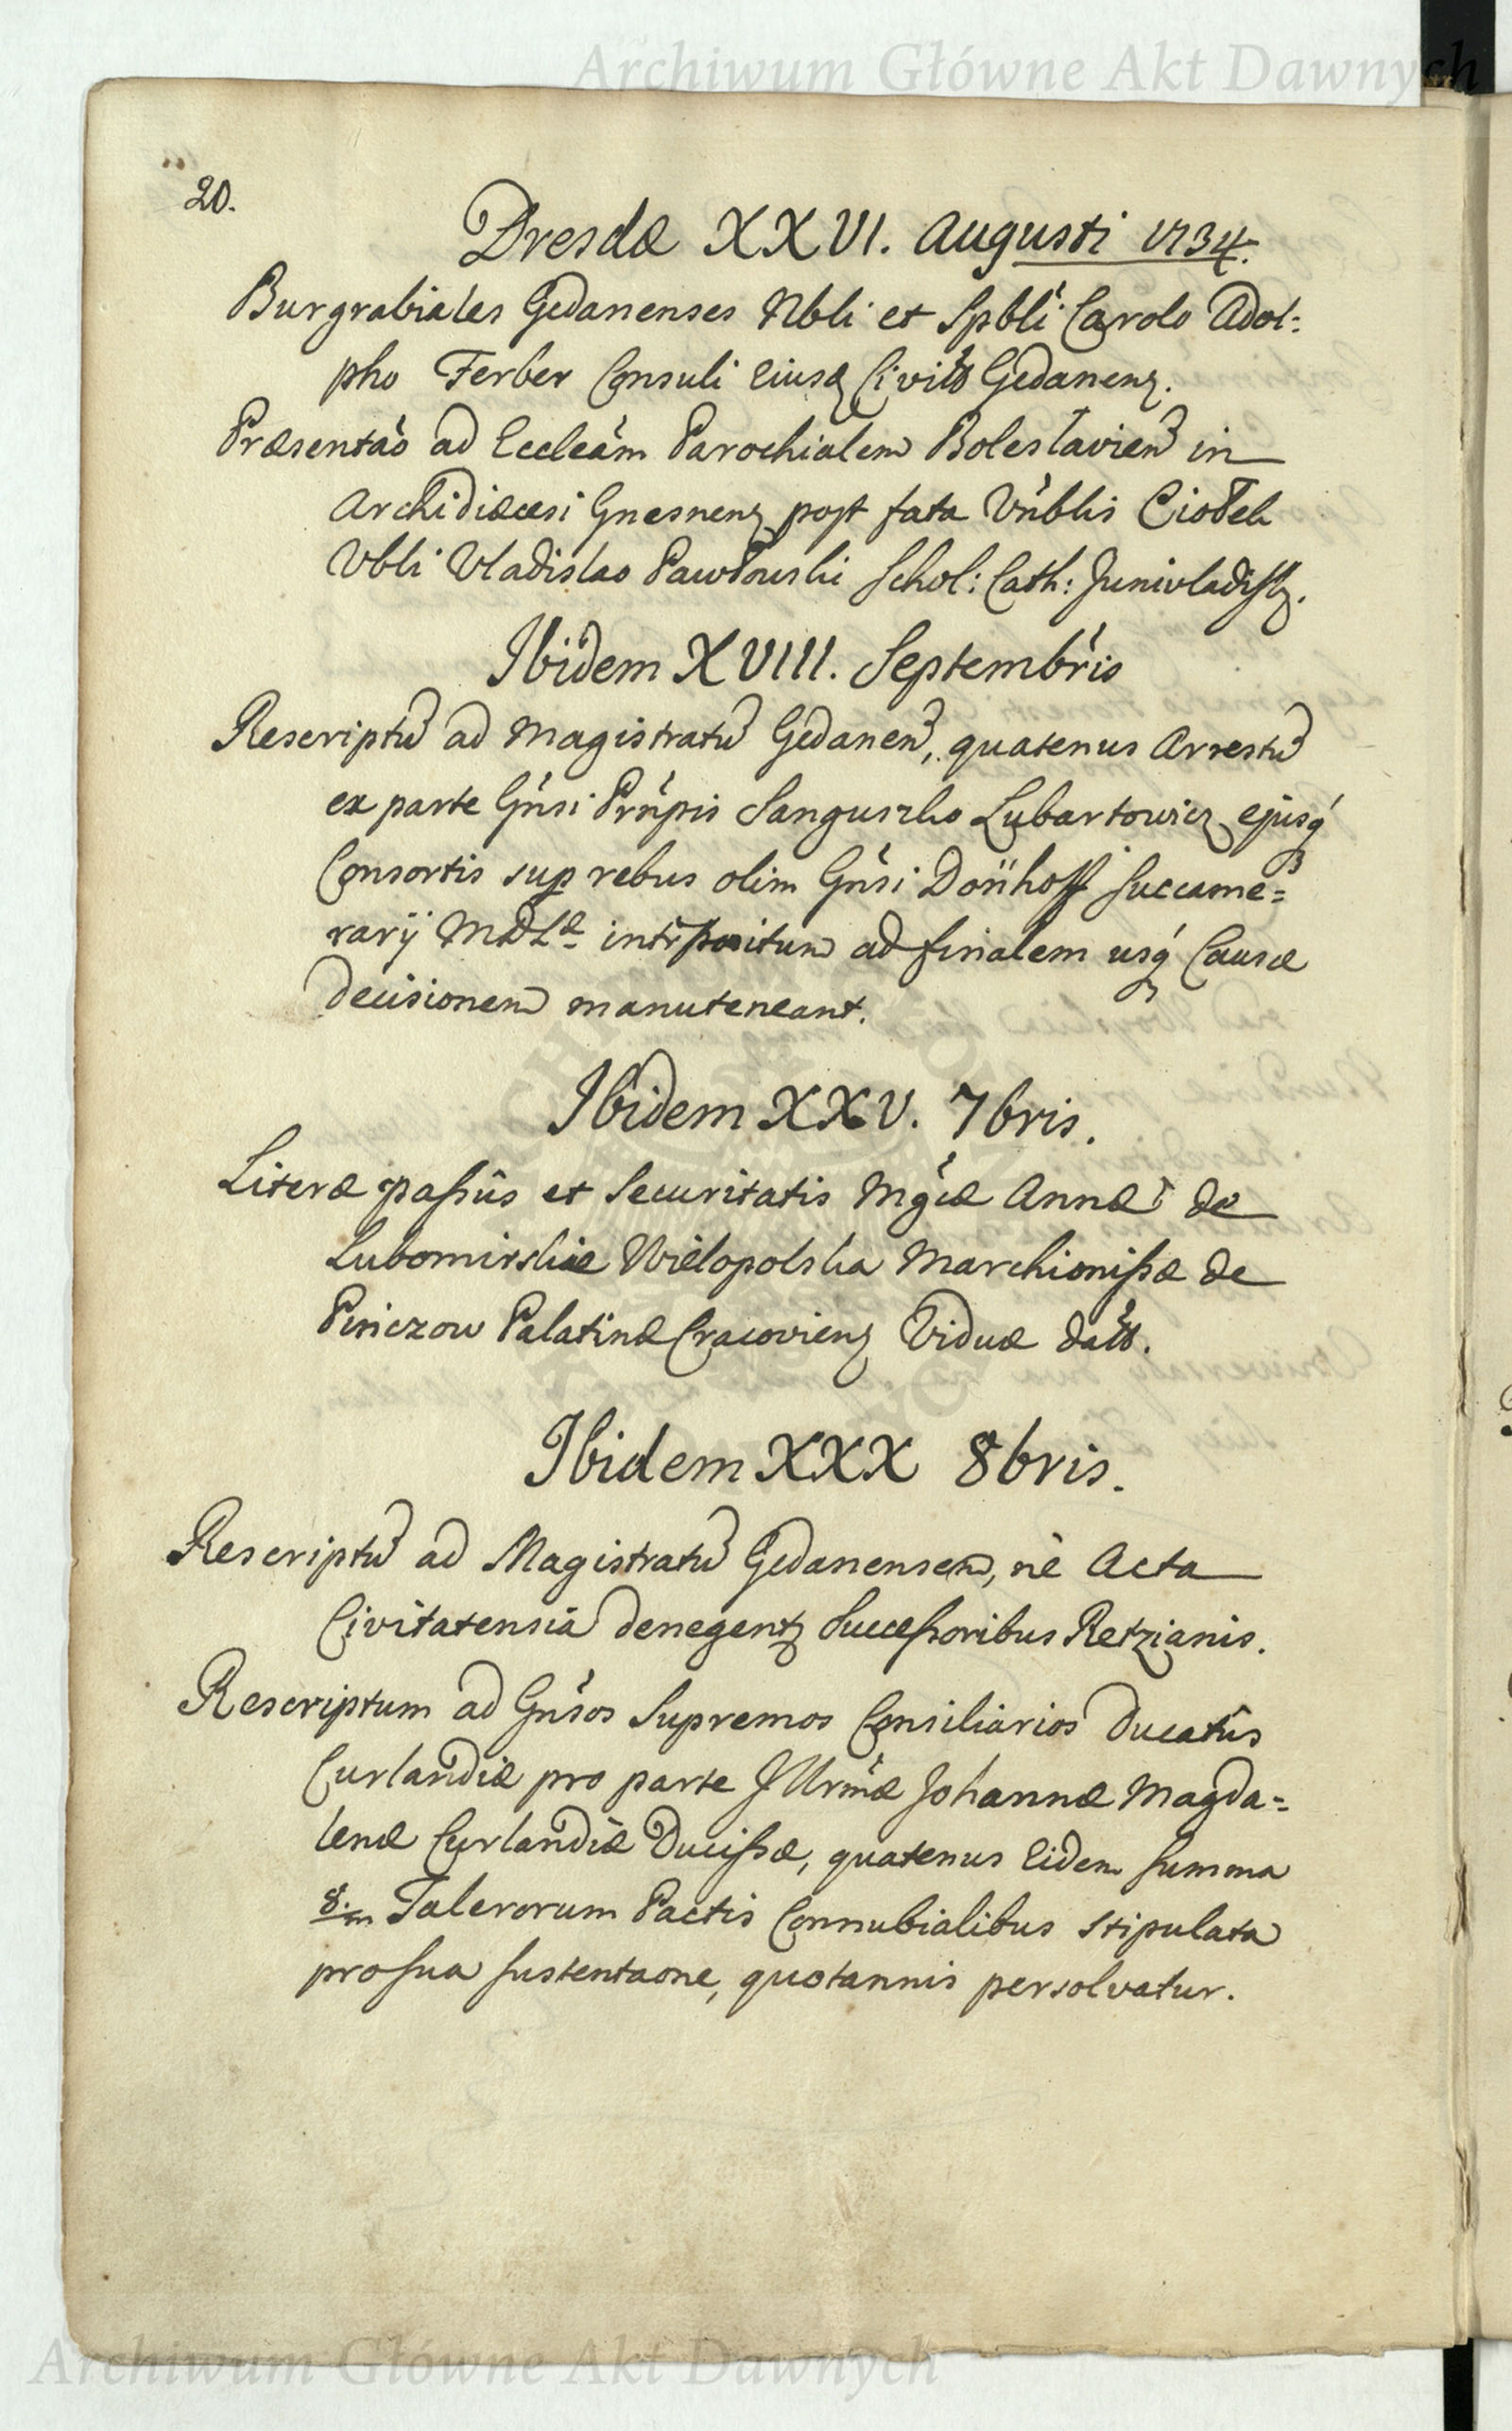 Archiwum Główne Akt Dawnych
20.
Dresdæ XXVI. Augusti 1734.
Burgrabiales Gedanenses Nbli et Spbli Carolo Adol=
pho Ferber Consuli Eiusq Civitts Gedanenz.
Præsentao ad Eccleam Parochialem Boleslavien in
Archidiæcesi Gnesnenz post fata Vnblis Ciołek
Vbli Vladislao Pawłowski Schol: Cath: Junivladislz.
Ibidem XVIII. Septembris
Rescriptu ad Magistratu Gedanen, quatenus Arrestu
ex parte Gnsi Prnpis Sanguszko Lubartowicz ejusq
Consortis sup rebus olim Gnsi Dönhoff succame=
rarij MDLæ intrpositum ad finalem usq Causæ
decisionem manuteneant.
Ibidem XXV. 7bris.
Literæ passûs et Securitatis Mgcæ Annæ de
Lubomirskie Wielopolska Marchionissæ de
Pinczow Palatinæ Cracovienz Viduæ datts.
Ibidem XXX 8bris.
Rescriptu ad Magistratu Gedanensem, ne Acta
Civitatensia denegentz Successoribus Retzianis.
Rescriptum ad Gnsos Supremos Consiliarios Ducatûs
Curlandiæ pro parte Illrmæ Johannæ Magda=
lenæ Curlandiæ Ducissæ, quatenus Eidem summa
8.m Talerorum Pactis Connubialibus stipulata
pro sua sustentaone, quotannis persolvatur.
Archiwum Główne Akt Dawnych